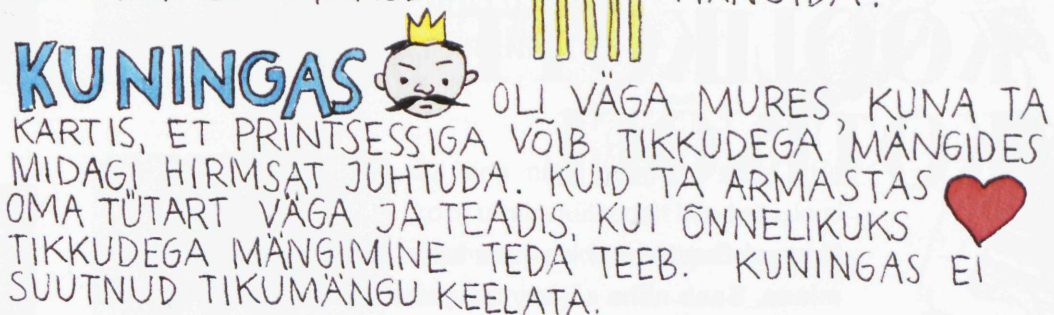 MÄNGIDA.
KUNINGAS OLI VÄGA MURES, KUNA TA
KARTIS, ET PRINTSESSIGA VÕIB TIKKUDEGA MÄNGIDES
MIDAGI HIRMSAT JUHTUDA. KUID TA ARMASTAS
OMA TÜTART VÄGA JA TEADIS, KUI ÕNNELIKUKS
TIKKUDEGA MÄNGIMINE TEDA TEEB. KUNINGAS EI
SUUTNUD TIKUMÄNGU KEELATA.